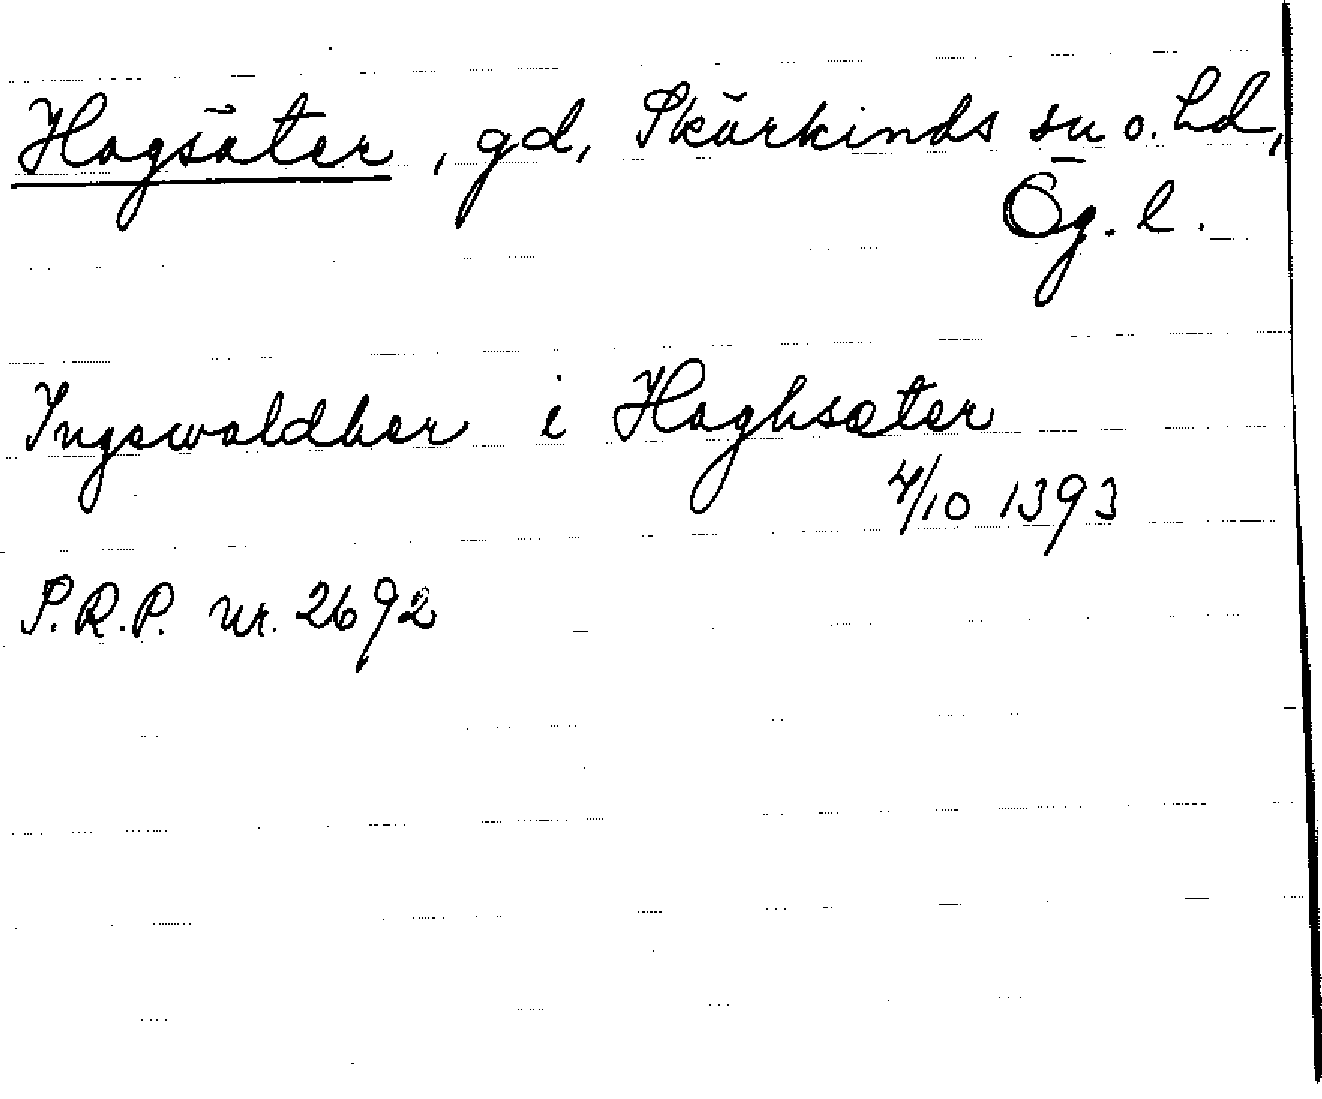 Hagsäter, gd, Skärkinds sn o. hd,
Ög. l.
Ingewaldber i Haghsæter
4/10 1393
S.R.P. nr. 2692